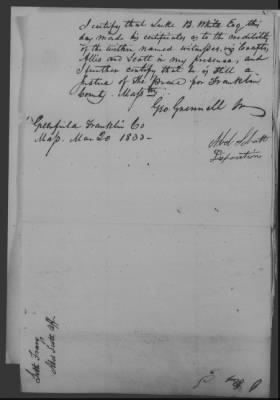 I certify that Luke B. White Esq. this
day made his certificates as to the credibility
of the within named witnesses, viz
Allis and Scott in my presence, and
I further certify that he is still a
Justice of the Peace for Franklin
County. Mass.
Geo. Grennell Jr
Greenfield Franklin Co
Mass. Mar 20 1833-
Abel Scott
Deposition
Abel Scott aff.